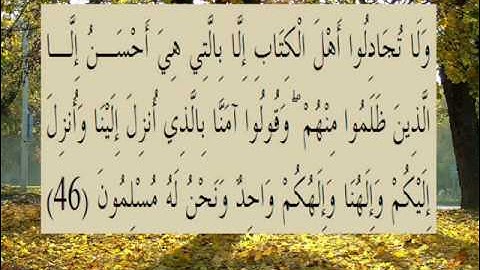 وَلَا تُجَادِلُوا أَهْلَ الْكِتَابِ إِلَّا بِالَّتِي هِيَ أَحْسَـــنُ إِلَّـــا
الَّذِينَ ظَلَمُوا مِنْهُمْ ۖ وَقُولُوا آمَنَّا بِالَّذِي أُنزِلَ إِلَيْنَا وَأُنزِلَ
إِلَيْكُمْ وَإِلَهُنَا وَإِلَهُكُمْ وَاحِدٌ وَنَحْنُ لَهُ مُسْلِمُونَ (46)